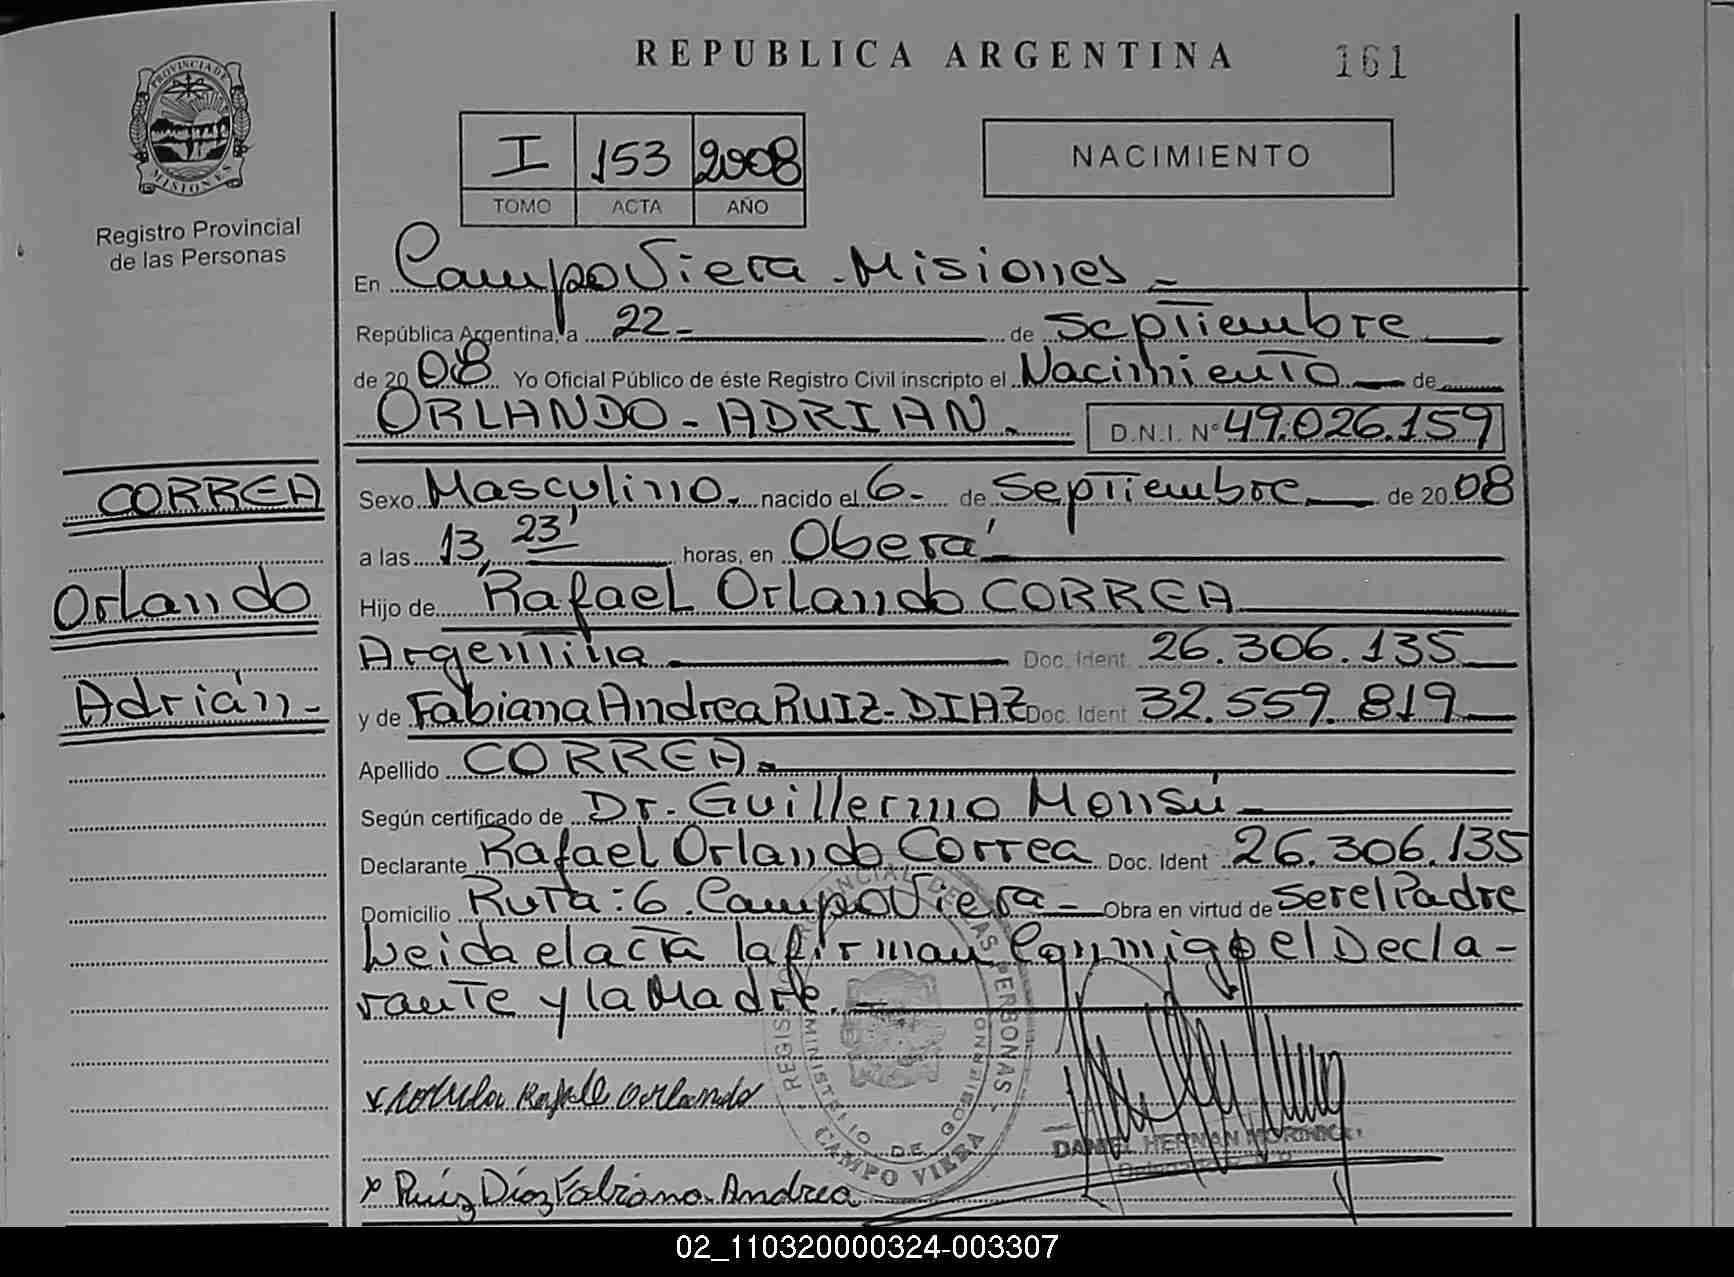 REPUBLICA ARGENTINA
161
PROVINCIA DE MISIONES
Registro Provincial
de las Personas
I 153 2008
TOMO ACTA AÑO
NACIMIENTO
En Campo Viera - Misiones -
República Argentina, a 22 - de Septiembre
de 2008 Yo Oficial Público de éste Registro Civil inscripto el Nacimiento de
ORLANDO - ADRIAN. D.N.I. Nº 49.026.159
CORREA
Orlando
Adrián -
Sexo Masculino, nacido el 6 - de Septiembre de 2008
a las 13, 23' horas, en Oberá
Hijo de Rafael Orlando CORREA
Argentina Doc. Ident 26.306.135
y de Fabiana Andrea RUIZ - DIAZ Doc. Ident 32.559.819
Apellido CORREA
Según certificado de Dr. Guillermo Monsú
Declarante Rafael Orlando Correa Doc. Ident 26.306.135
Domicilio Ruta: 6. Campo Viera - Obra en virtud de Ser el Padre
Leida el acta la firman Conmigo el Decla-
rante y la Madre.
REGISTRO PROVINCIAL DE LAS PERSONAS
MINISTERIO DE GOBIERNO
CAMPO VIERA
x Rafael Orlando
DANIEL HERNAN
x Ruiz Diaz Fabiana Andrea
02_110320000324-003307